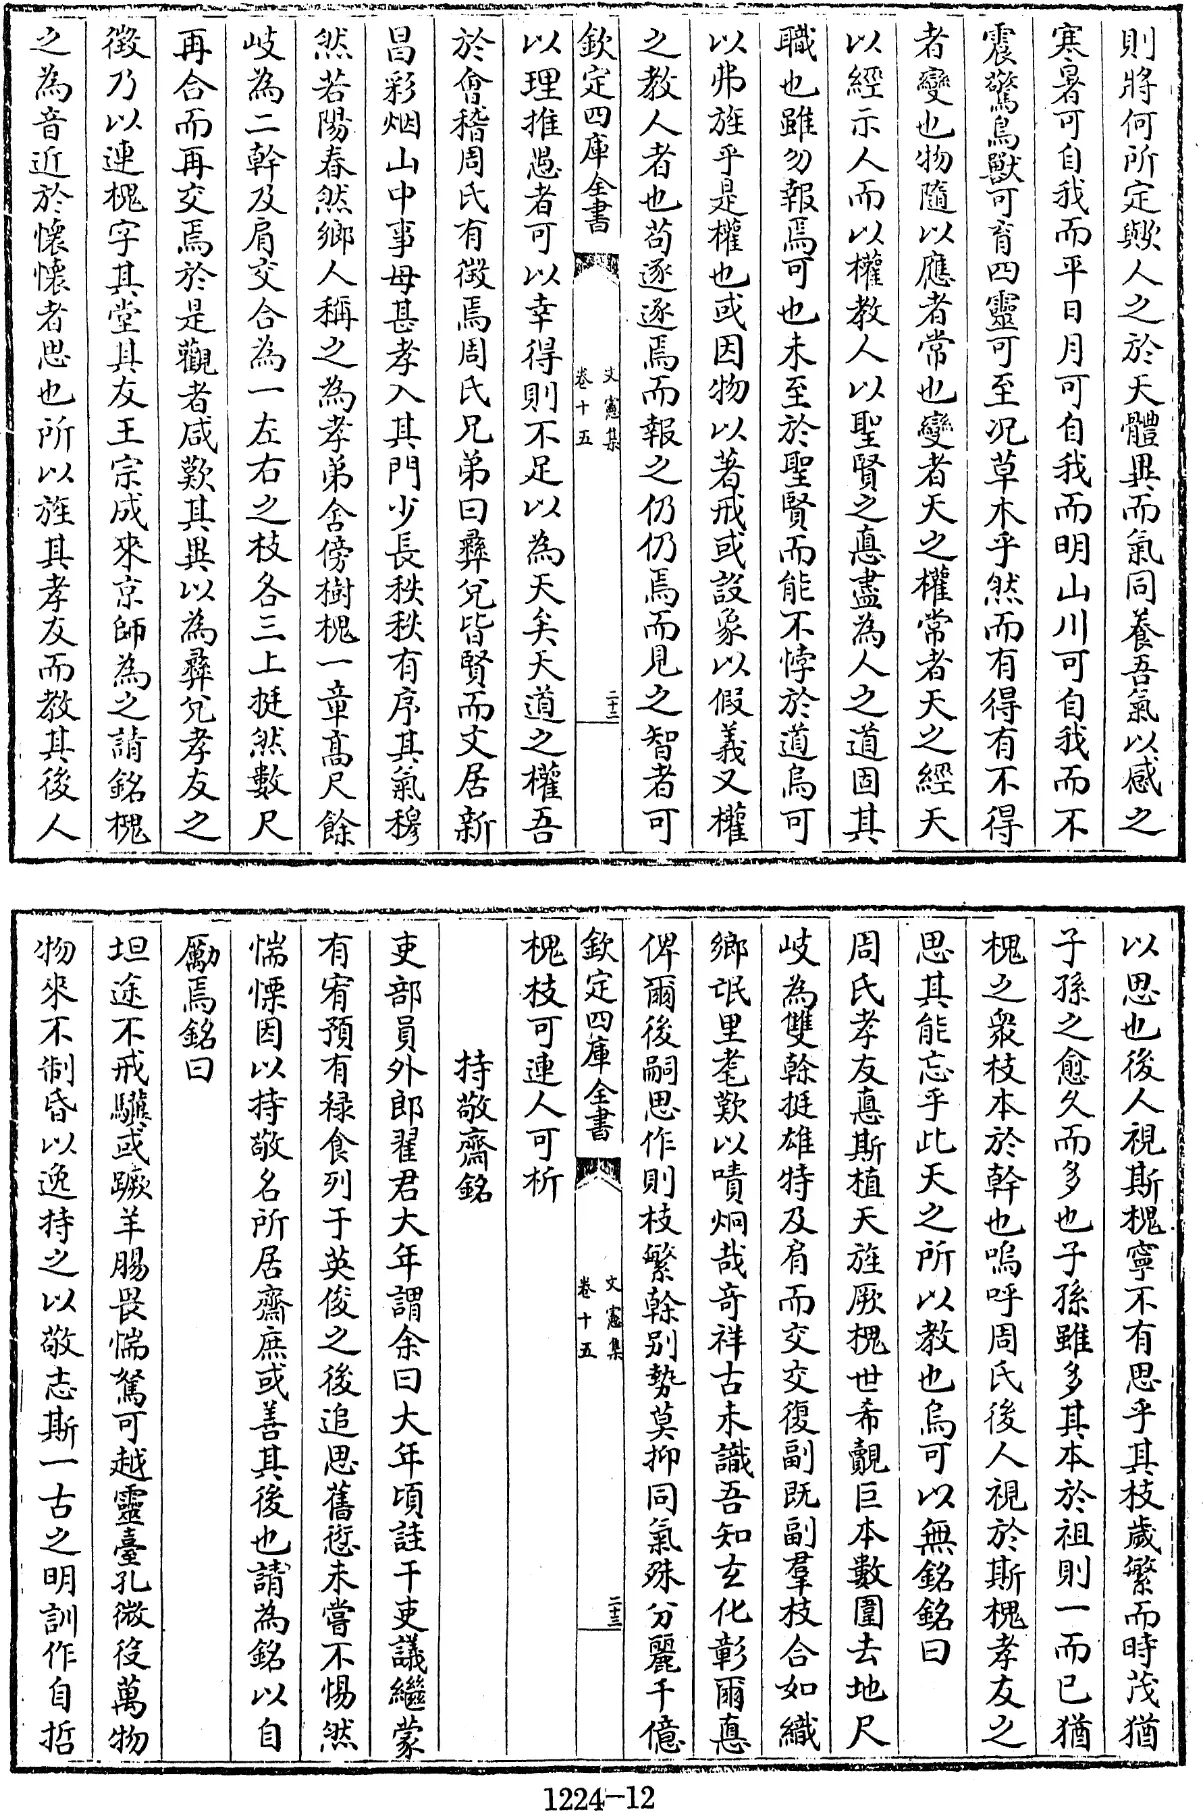 則將何所定歟人之於天體異而氣同養吾氣以感之
寒暑可自我而平日月可自我而明山川可自我而不
震驚鳥獸可育四靈可至况草木乎然而有得有不得
者變也物隨以應者常也變者天之權常者天之經天
以經示人而以權教人以聖賢之悳盡為人之道固其
職也雖勿報焉可也未至於聖賢而能不悖於道烏可
以弗旌乎是權也或因物以著戒或設象以假義又權
之教人者也苟逐逐焉而報之仍仍焉而見之智者可
欽定四庫全書
文憲集
卷十五
二十二
以理推愚者可以幸得則不足以為天矣天道之權吾
於會稽周氏有徴焉周氏兄弟曰彞兊皆賢而文居新
昌彩烟山中事母甚孝入其門少長秩秩有序其氣穆
然若陽春然鄉人稱之為孝弟舍傍樹槐一章高尺餘
岐為二幹及肩交合為一左右之枝各三上挺然數尺
再合而再交焉於是觀者咸歎其異以為彞兊孝友之
徴乃以連槐字其堂具友王宗成來京師為之請銘槐
之為音近於懷懷者思也所以旌其孝友而教其後人
以思也後人視斯槐寧不有思乎其枝歲繁而時茂猶
子孫之愈久而多也子孫雖多其本於祖則一而已猶
槐之衆枝本於幹也嗚呼周氏後人視於斯槐孝友之
思其能忘乎此天之所以教也烏可以無銘銘曰
周氏孝友悳斯植天旌厥槐世希覿巨本數圍去地尺
岐為雙榦挺雄特及肩而交交復副既副羣枝合如織
鄉氓里耄歎以嘖炯哉竒祥古未識吾知玄化彰爾悳
俾爾後嗣思作則枝繁榦别勢莫抑同氣殊分麗千億
欽定四庫全書
文憲集
卷十五
二十三
槐枝可連人可析
持敬齋銘
吏部員外郎翟君大年謂余曰大年頃註干吏議繼蒙
有宥預有禄食列于英俊之後追思舊愆未嘗不惕然
惴慄因以持敬名所居齋庶或善其後也請為銘以自
勵焉銘曰
坦途不戒驥或蹶羊腸畏惴駑可越靈臺孔微役萬物
物來不制昏以逸持之以敬志斯一古之明訓作自哲
1224-12